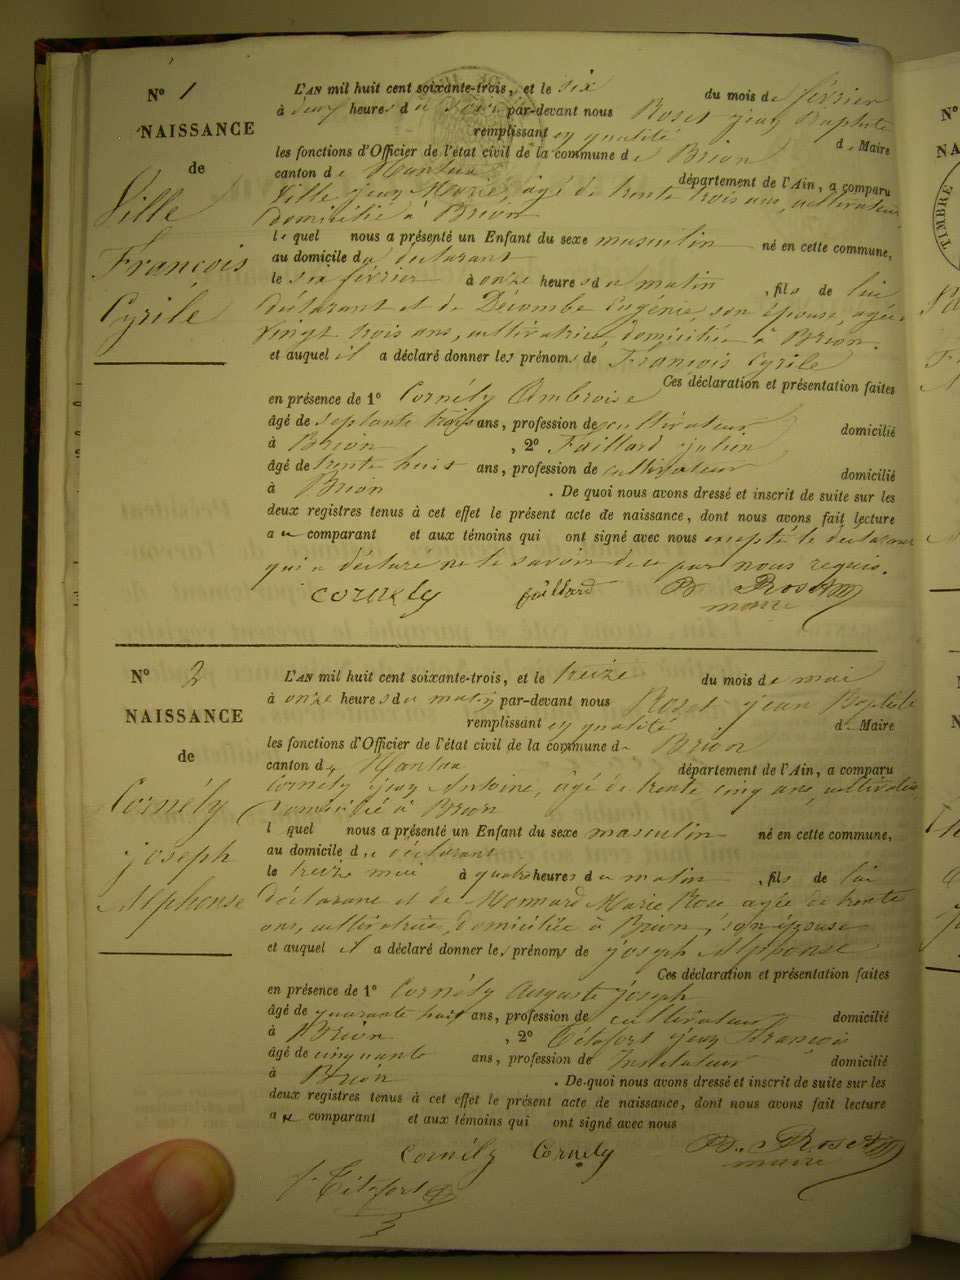 N° 1
NAISSANCE
de
Ville
François
Cyrile
L'AN mil huit cent soixante-trois, et le six du mois de février
à deux heures du soir par-devant nous Roset jean Baptiste
remplissant en qualité de Maire
les fonctions d'Officier de l'état civil de la commune de Brion
canton de Nantua département de l'Ain, a comparu
Ville jean Marie, âgé de trente trois ans, cultivateur
domicilié à Brion
lequel nous a présenté un Enfant du sexe masculin né en cette commune,
au domicile du déclarant
le six février à onze heures du matin, fils de lui
déclarant et de Décombe Eugénie, son épouse, agée
vingt trois ans, cultivatrice, domiciliée à Brion.
et auquel il a déclaré donner les prénoms de François Cyrile
Ces déclaration et présentation faites
en présence de 1° Cornély Ambroise
âgé de septante trois ans, profession de cultivateur domicilié
à Brion, 2° Faillard julien
âgé de trente huit ans, profession de cultivateur domicilié
à Brion. De quoi nous avons dressé et inscrit de suite sur les
deux registres tenus à cet effet le présent acte de naissance, dont nous avons fait lecture
au comparant et aux témoins qui ont signé avec nous excepté le déclarant
qui a déclaré ne le savoir de ce par nous requis.
cornely faillard B. Roset
maire
N° 2
NAISSANCE
de
Cornély
joseph
Alphonse
L'AN mil huit cent soixante-trois, et le treize du mois de mai
à onze heures du matin par-devant nous Roset jean Baptiste
remplissant en qualité de Maire
les fonctions d'Officier de l'état civil de la commune de Brion
canton de Nantua département de l'Ain, a comparu
Cornély jean Antoine, âgé de trente cinq ans, cultivateur
domicilié à Brion
lequel nous a présenté un Enfant du sexe masculin né en cette commune,
au domicile du déclarant
le treize mai à quatre heures du matin, fils de lui
déclarant et de Monnard Marie Rose agée de trente
ans, cultivatrice, domiciliée à Brion, son épouse
et auquel il a déclaré donner les prénoms de joseph Alphonse
Ces déclaration et présentation faites
en présence de 1° Cornély Auguste joseph
âgé de quarante huit ans, profession de cultivateur domicilié
à Brion, 2° Tétafort jean François
âgé de cinquante ans, profession de Instituteur domicilié
à Brion. De quoi nous avons dressé et inscrit de suite sur les
deux registres tenus à cet effet le présent acte de naissance, dont nous avons fait lecture
au comparant et aux témoins qui ont signé avec nous
Cornély Cornely B. Roset
maire
f. Tétafort
TIMBRE